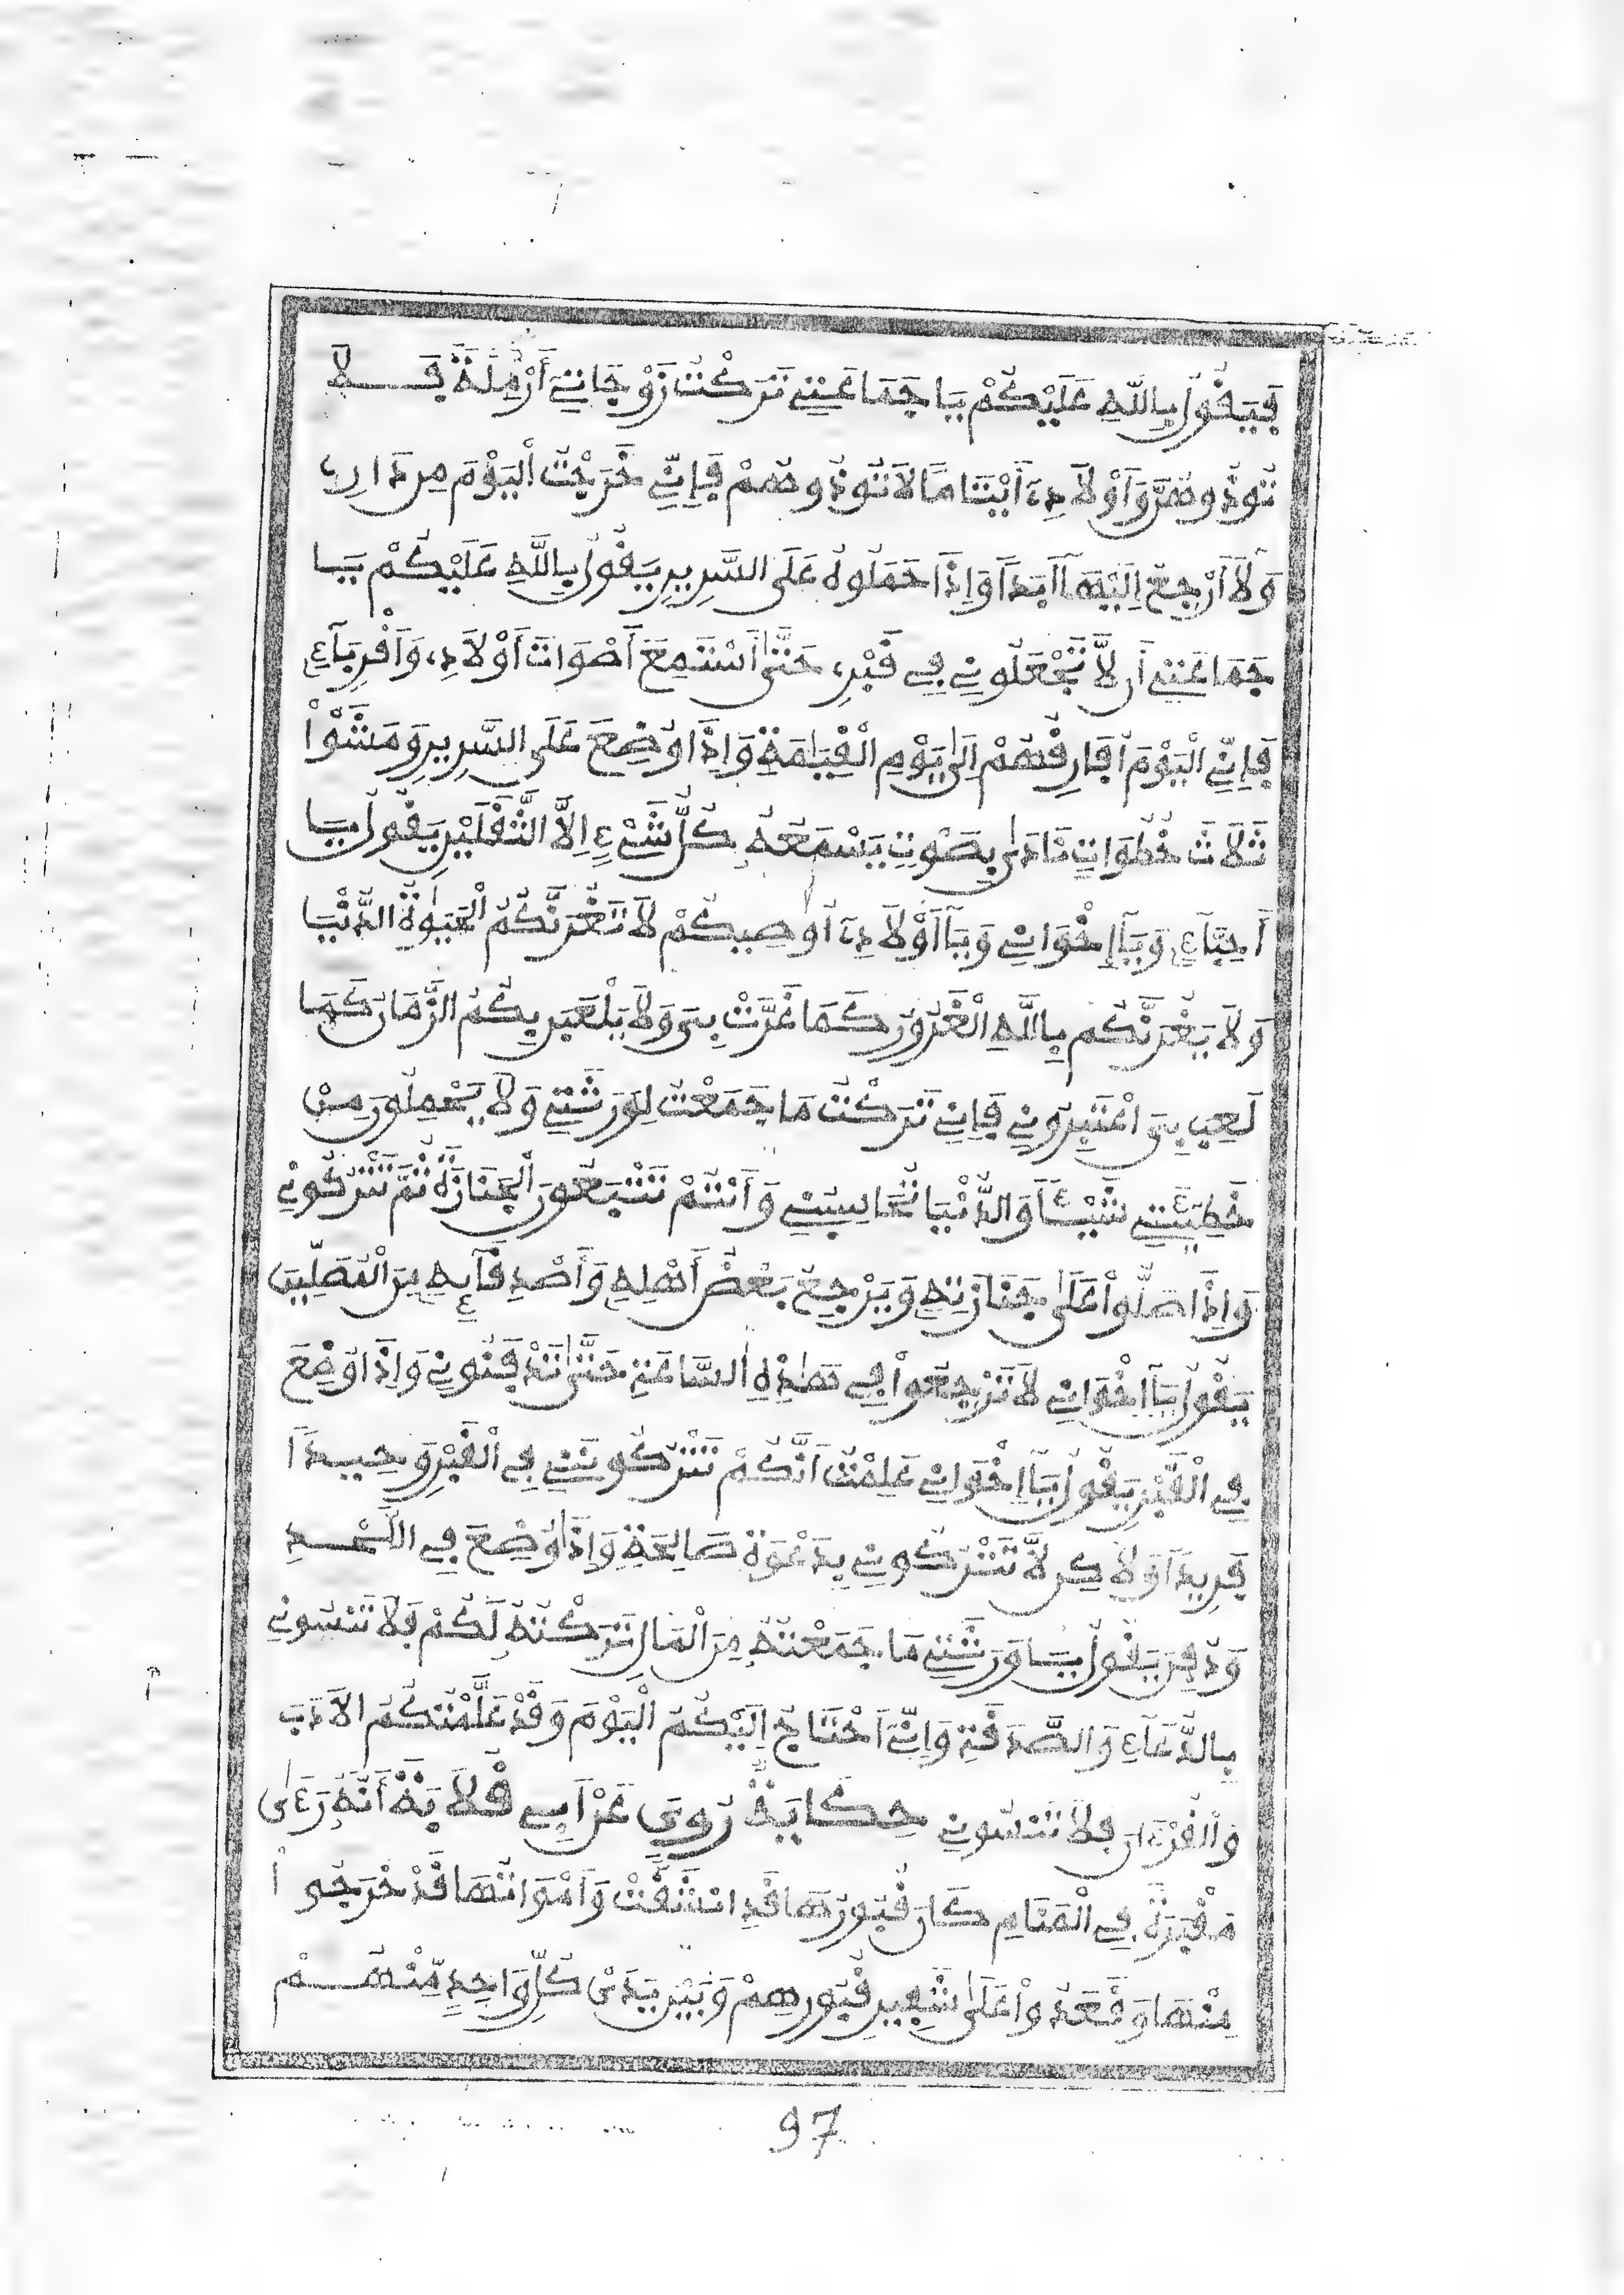 فَيَقُولُ بِاللَّهِ عَلَيْكُمْ يَا جَمَاعَتِي تَرَكْتُ زَوْجَاتِي أَرْمِلَةً فَلَا
تُوذُوهُنَّ وَأَوْلَادِي أَيْتَامًا لَا تُوذُوهُمْ فَإِنِّي خَرَجْتُ الْيَوْمَ مِن دَارِي
وَلَا أَرْجِعُ إِلَيْهَا أَبَدًا وَإِذَا حَمَلُوهُ عَلَى السَّرِيرِ يَقُولُ بِاللَّهِ عَلَيْكُمْ يَا
جَمَاعَتِي أَن لَّا تَجْعَلُونِي فِي قَبْرِي حَتَّى أَسْتَمِعَ أَصْوَاتَ أَوْلَادِي وَأَقْرِبَآءِي
فَإِنِّي الْيَوْمَ أُفَارِقُهُمْ إِلَى يَوْمِ الْقِيَامَةِ وَإِذَا وُضِعَ عَلَى السَّرِيرِ وَمَشَوْا
ثَلَاثَ خُطُوَاتٍ نَادَى بِصَوْتٍ يَسْمَعُهُ كُلُّ شَيْءٍ إِلَّا الثَّقَلَيْنِ يَقُولُ يَا
أَحِبَّآءِي وَيَآ إِخْوَانِي وَيَآ أَوْلَادِي أُوصِيكُمْ لَا تَغُرَّنَّكُمُ الْحَيَوٰةُ الدُّنْيَا
وَلَا يَغُرَّنَّكُم بِاللَّهِ الْغَرُورُ كَمَا غَرَّتْ بِي وَلَا يَلْعَبَن بِكُمُ الزَّمَانُ كَمَا
لَعِبَ بِي اعْتَبِرُونِي فَإِنِّي تَرَكْتُ مَا جَمَعْتُ لِوَرَثَتِي وَلَا يَحْمِلُونَ مِنْ
خَطِيئَتِي شَيْئًا وَالدُّنْيَا تُحَاسِبُنِي وَأَنْتُمْ تَتْبَعُونَ الْجَنَازَةَ ثُمَّ تَتْرُكُونِي
وَإِذَا صَلَّوْا عَلَى جَنَازَتِهِ وَيَرْجِعُ بَعْضُ أَهْلِهِ وَأَصْدِقَآئِهِ مِنَ الْمُصَلِّينَ
يَقُولُ يَآ إِخْوَانِي لَا تَرْجِعُوا فِي هَٰذِهِ السَّاعَةِ حَتَّى تَدْفِنُونِي وَإِذَا وُضِعَ
فِي الْقَبْرِ يَقُولُ يَآ إِخْوَانِي عَلِمْتُ أَنَّكُمْ تَتْرُكُونَنِي فِي الْقَبْرِ وَحِيدًا
فَرِيدًا وَلَٰكِن لَّا تَتْرُكُونِي بِدَعْوَةٍ صَالِحَةٍ وَإِذَا وُضِعَ فِي اللَّحْدِ
وَدُفِنَ يَقُولُ يَا وَرَثَتِي مَا جَمَعْتُهُ مِنَ الْمَالِ تَرَكْتُهُ لَكُمْ فَلَا تَنْسَوْنِي
بِالدُّعَآءِ وَالصَّدَقَةِ وَإِنِّي أَحْتَاجُ إِلَيْكُمُ الْيَوْمَ وَقَدْ عَلَّمْتُكُمُ الْآدَبَ
وَالْقُرْءَانَ فَلَا تَنْسَوْنِي حِكَايَةٌ رُوِيَ عَنْ أَبِي قِلَابَةَ أَنَّهُ رَءَى
مَقْبَرَةً فِي الْمَنَامِ كَانَ قُبُورُهَا قَدِ انْشَقَّتْ وَأَمْوَاتُهَا قَدْ خَرَجُوا
مِنْهَا وَقَعَدُوا عَلَى شَفِيرِ قُبُورِهِمْ وَبَيْنَ يَدَيْ كُلِّ وَاحِدٍ مِّنْهُمْ
97